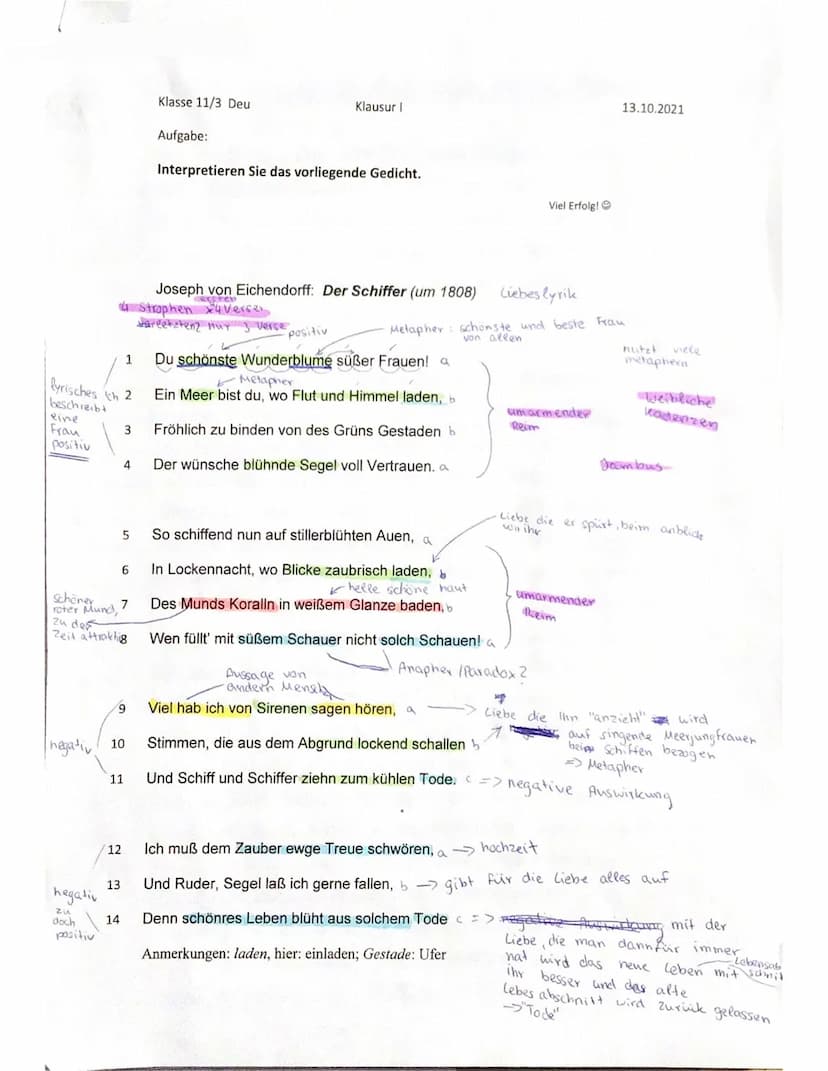 Klasse 11/3 Deu Klausur I 13.10.2021
Aufgabe:
Interpretieren Sie das vorliegende Gedicht.
Viel Erfolg!☺
Joseph von Eichendorff: Der Schiffer (um 1808) Liebeslyrik
ersten
4 Strophen x4Verse
nur 3 Verse
positiv
Metapher: schönste und beste Frau
von allen
nutzt viele
metaphern
1 Du schönste Wunderblume süßer Frauen! a
Metapher
lyrisches Ich
beschreibt
eine
Frau
positiv
2 Ein Meer bist du, wo Flut und Himmel laden, b
weibliche
Kadenzen
umarmender
Reim
3 Fröhlich zu binden von des Grüns Gestaden b
4 Der wünsche blühnde Segel voll Vertrauen. a
Jambus
Liebe die er spürt, beim anblick
von ihr
5 So schiffend nun auf stillerblühten Auen, a
6 In Lockennacht, wo Blicke zaubrisch laden, b
helle schöne haut
schöner
roter Mund,
zu der
Zeit attraktiv
7 Des Munds Koralln in weißem Glanze baden, b
umarmender
Reim
8 Wen füllt' mit süßem Schauer nicht solch Schauen! a
Anapher /Paradox?
Aussage von
andern Mensch
9 Viel hab ich von Sirenen sagen hören, a
Liebe die Ihn "anzieht" wird
auf singende Meerjungfrauen
beim Schiffen bezogen
=> Metapher
negativ
10 Stimmen, die aus dem Abgrund lockend schallen b
11 Und Schiff und Schiffer ziehn zum kühlen Tode. c => negative Auswirkung
12 Ich muß dem Zauber ewge Treue schwören, a => hochzeit
13 Und Ruder, Segel laß ich gerne fallen, b -> gibt für die Liebe alles auf
negativ
zu
doch
positiv
14 Denn schönres Leben blüht aus solchem Tode c => negative Auswirkung mit der
Liebe, die man dann für immer
hat wird das neue Leben mit
ihr besser und das alte
Lebensabschnitt wird zurück gelassen
-> "Tode"
Anmerkungen: laden, hier: einladen; Gestade: Ufer